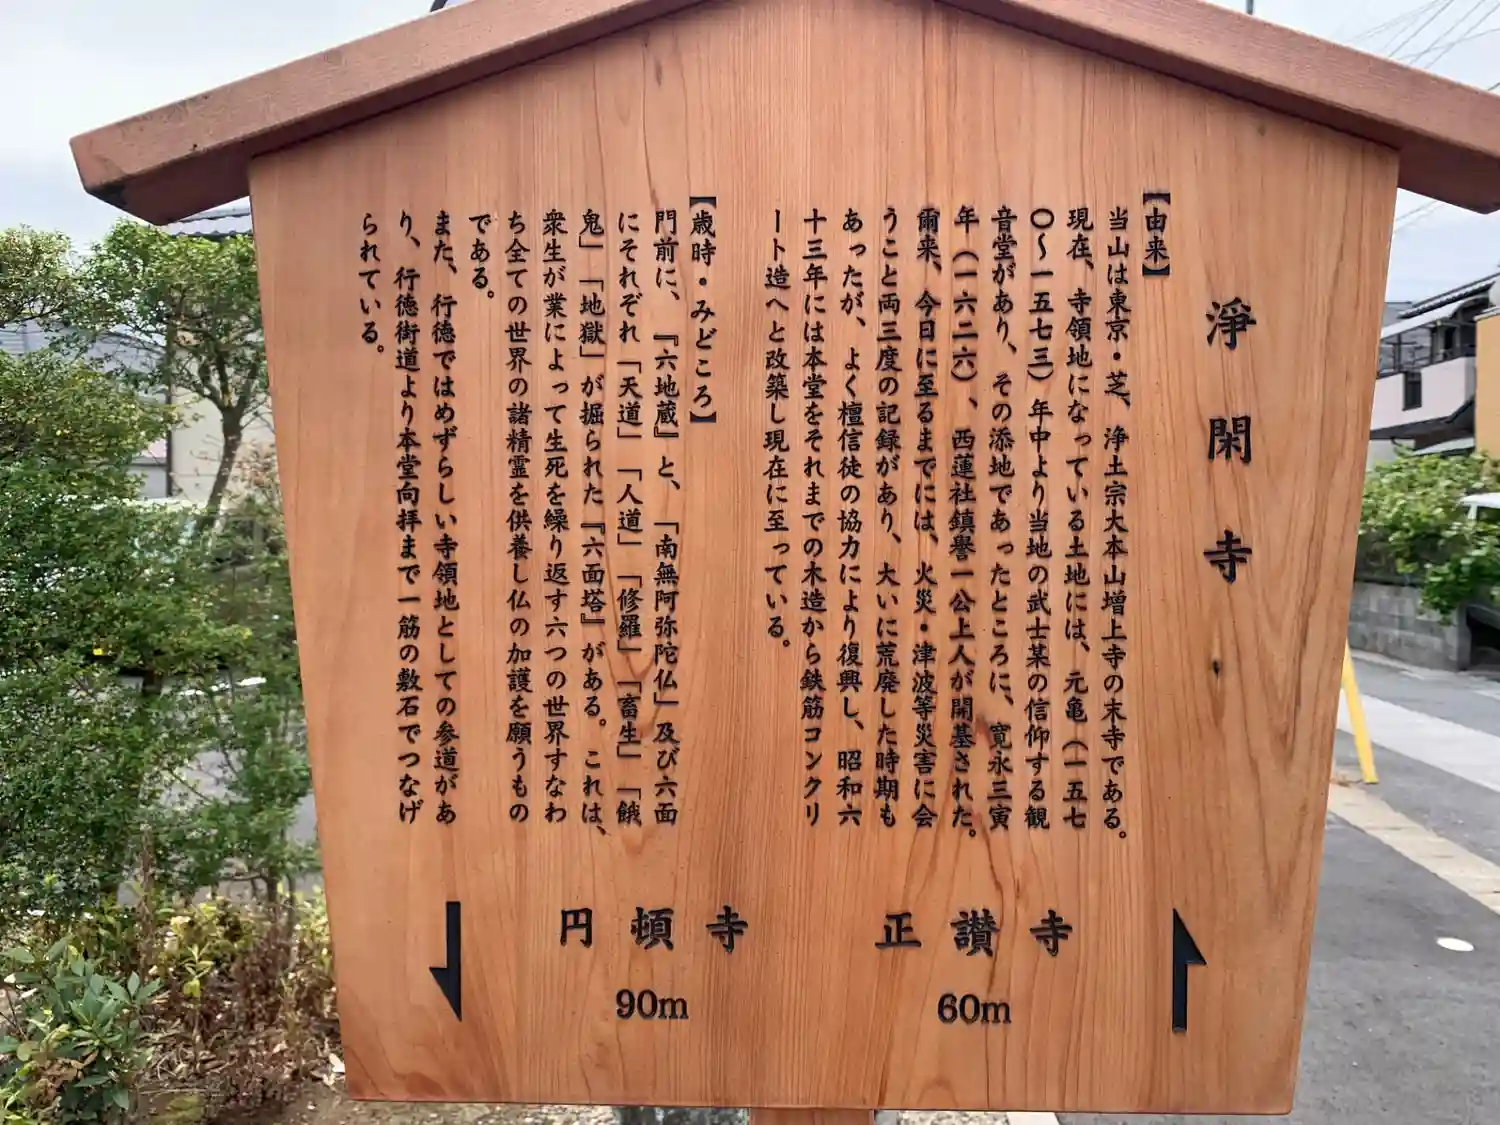 淨閑寺
【由来】
当山は東京・芝、浄土宗大本山増上寺の末寺である。
現在、寺領地になっている土地には、元亀（一五七
〇〜一五七三）年中より当地の武士某の信仰する観
音堂があり、その添地であったところに、寛永三寅
年（一六二六）、西蓮社鎮誉一公上人が開基された。
爾来、今日に至るまでには、火災・津波等災害に会
うこと両三度の記録があり、大いに荒廃した時期も
あったが、よく檀信徒の協力により復興し、昭和六
十三年には本堂をそれまでの木造から鉄筋コンクリ
ート造へと改築し現在に至っている。
【歳時・みどころ】
門前に、『六地蔵』と、「南無阿弥陀仏」及び六面
にそれぞれ「天道」「人道」「修羅」「畜生」「餓
鬼」「地獄」が掘られた『六面塔』がある。これは、
衆生が業によって生死を繰り返す六つの世界すなわ
ち全ての世界の諸精霊を供養し仏の加護を願うもの
である。
また、行徳ではめずらしい寺領地としての参道があ
り、行徳街道より本堂向拝まで一筋の敷石でつなげ
られている。
円頓寺
90m
正讃寺
60m